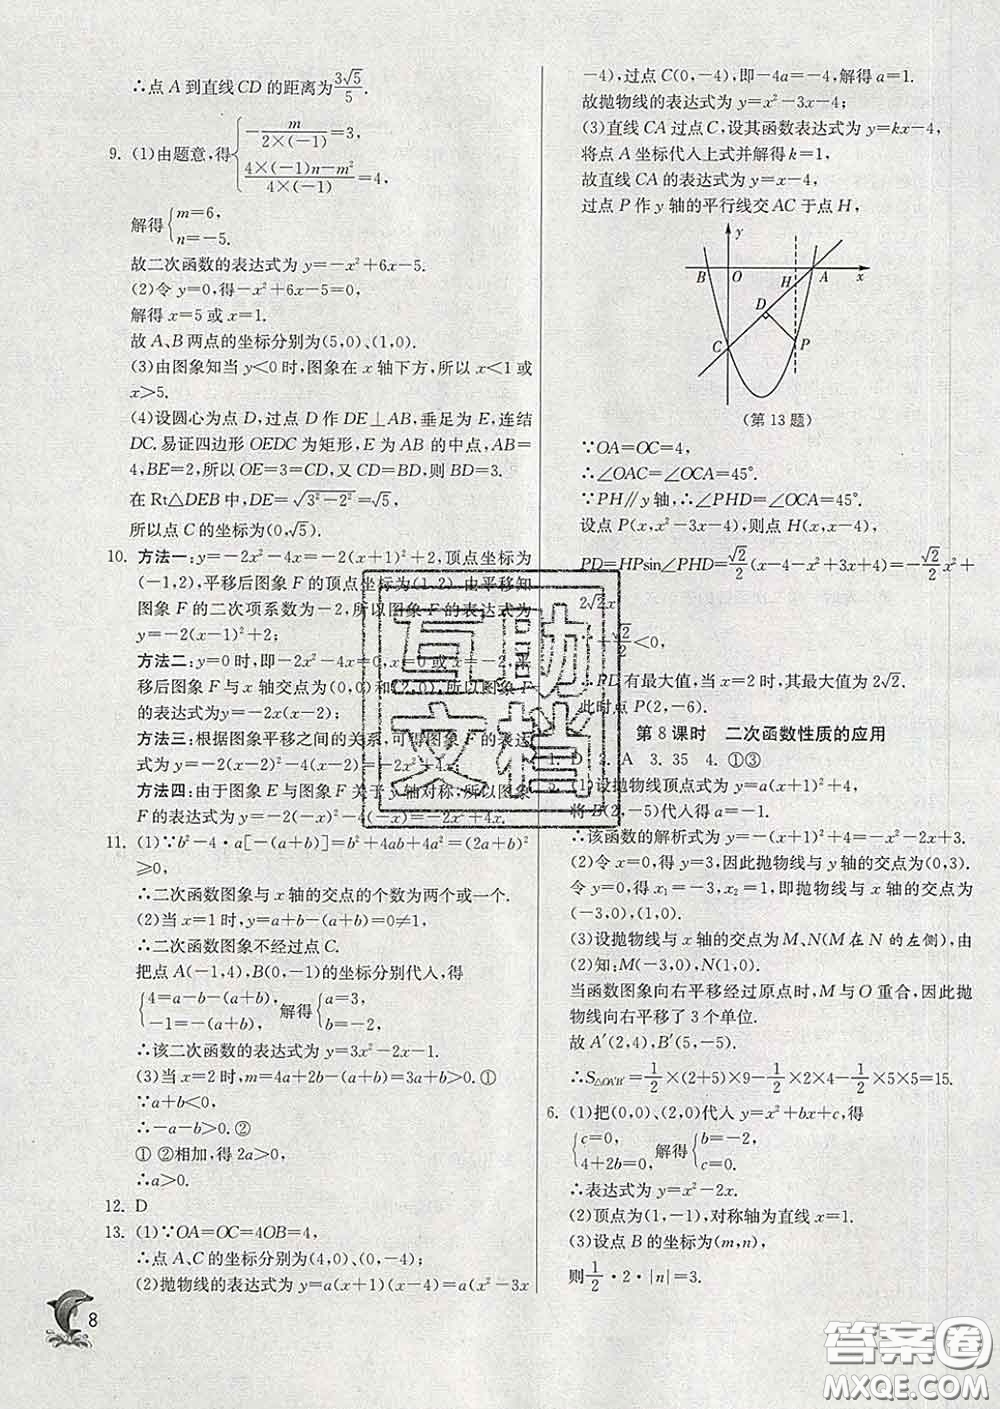 ∴点 A 到直线 CD 的距离为3√5/5.
9. (1)由题意,得{-m/(2×(-1))=3,
(4×(-1)n-m²)/(4×(-1))=4,
解得{m=6,
n=-5.
故二次函数的表达式为 y=-x²+6x-5.
(2)令 y=0,得-x²+6x-5=0,
解得 x=5 或 x=1.
故 A、B 两点的坐标分别为(5,0)、(1,0).
(3)由图象知当 y<0 时,图象在 x 轴下方,所以 x<1 或
x>5.
(4)设圆心为点 D,过点 D 作 DE⊥AB,垂足为 E,连结
DC.易证四边形 OEDC 为矩形,E 为 AB 的中点,AB=
4,BE=2,所以 OE=3=CD,又 CD=BD,则 BD=3.
在 Rt△DEB 中,DE=√(3²-2²)=√5,
所以点 C 的坐标为(0,√5).
10. 方法一:y=-2x²-4x=-2(x+1)²+2,顶点坐标为
(-1,2),平移后图象 F 的顶点坐标为(1,2).由平移知
图象 F 的二次项系数为-2,所以图象 F 的表达式为
y=-2(x-1)²+2;
方法二:y=0时,即-2x²-4x=0,x=0 或 x=-2,平
移后图象 F 与 x 轴交点为(0,0)和(2,0),所以图象 F
的表达式为 y=-2x(x-2);
方法三:根据图象平移之间的关系,可得图象 F 的表达
式为 y=-2(x-2)²-4(x-2);
方法四:由于图象 E 与图象 F 关于 y 轴对称,所以图象
F 的表达式为 y=-2(-x)²-4(-x)=-2x²+4x.
11. (1)∵b²-4·a[-(a+b)]=b²+4ab+4a²=(2a+b)²
≥0,
∴二次函数图象与 x 轴的交点的个数为两个或一个.
(2)当 x=1 时,y=a+b-(a+b)=0≠1,
∴二次函数图象不经过点 C.
把点 A(-1,4),B(0,-1)的坐标分别代入,得
{4=a-b-(a+b),
-1=-(a+b), 解得{a=3,
b=-2,
∴该二次函数的表达式为 y=3x²-2x-1.
(3)当 x=2 时,m=4a+2b-(a+b)=3a+b>0.①
∵a+b<0,
∴-a-b>0.②
① ②相加,得 2a>0,
∴a>0.
12. D
13. (1)∵OA=OC=4OB=4,
∴点 A、C 的坐标分别为(4,0)、(0,-4);
(2)抛物线的表达式为 y=a(x+1)(x-4)=a(x²-3x
8
-4),过点 C(0,-4),即-4a=-4,解得 a=1.
故抛物线的表达式为 y=x²-3x-4;
(3)直线 CA 过点 C,设其函数表达式为 y=kx-4,
将点 A 坐标代入上式并解得 k=1,
故直线 CA 的表达式为 y=x-4,
过点 P 作 y 轴的平行线交 AC 于点 H,
y
B O H A x
D
C P
(第 13 题)
∵OA=OC=4,
∴∠OAC=∠OCA=45°.
∵PH∥y 轴,∴∠PHD=∠OCA=45°.
设点 P(x,x²-3x-4),则点 H(x,x-4),
PD=HPsin∠PHD=√2/2(x-4-x²+3x+4)=-√2/2x²+
2√2x
-√2/2<0,
∴PD 有最大值,当 x=2 时,其最大值为 2√2.
此时点 P(2,-6).
第 8 课时 二次函数性质的应用
1. D 2. A 3. 35 4. ①③
5. (1)设抛物线顶点式为 y=a(x+1)²+4,
将 B(2,-5)代入得 a=-1.
∴该函数的解析式为 y=-(x+1)²+4=-x²-2x+3.
(2)令 x=0,得 y=3,因此抛物线与 y 轴的交点为(0,3).
令 y=0,得 x₁=-3,x₂=1,即抛物线与 x 轴的交点为
(-3,0),(1,0).
(3)设抛物线与 x 轴的交点为 M、N(M 在 N 的左侧),由
(2)知:M(-3,0),N(1,0).
当函数图象向右平移经过原点时,M 与 O 重合,因此抛
物线向右平移了 3 个单位.
故 A′(2,4),B′(5,-5).
∴S△OA′B′=1/2×(2+5)×9-1/2×2×4-1/2×5×5=15.
6. (1)把(0,0)、(2,0)代入 y=x²+bx+c,得
{c=0,
4+2b=0, 解得{b=-2,
c=0.
∴表达式为 y=x²-2x.
(2)顶点为(1,-1),对称轴为直线 x=1.
(3)设点 B 的坐标为(m,n),
则1/2·2·|n|=3.
互助
文档
答案圈
MXQE.COM